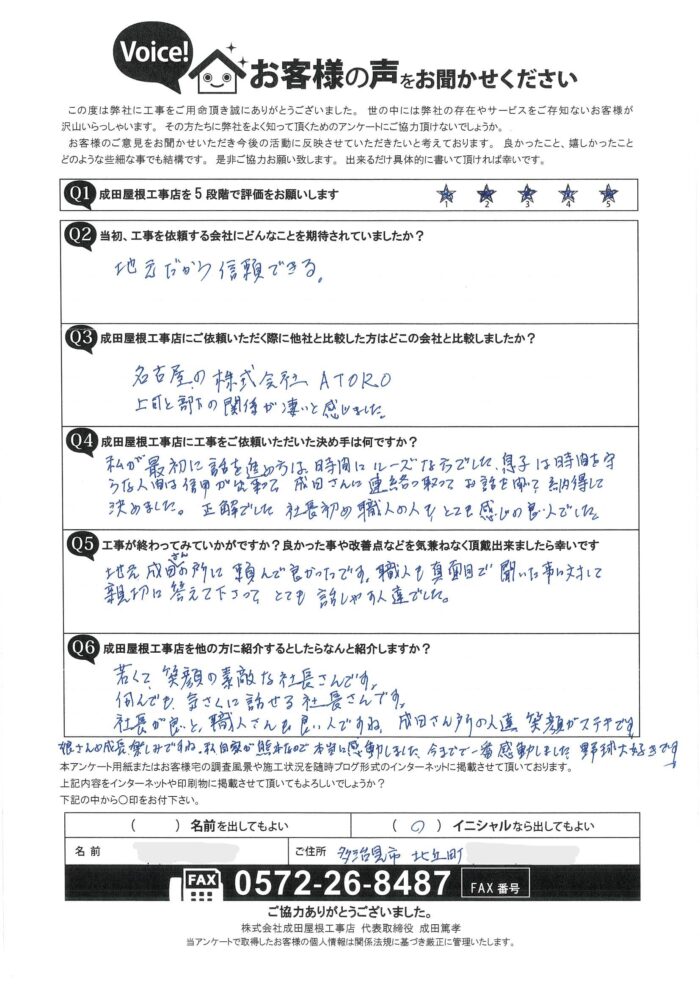 Voice!
お客様の声をお聞かせください
この度は弊社に工事をご用命頂き誠にありがとうございました。 世の中には弊社の存在やサービスをご存知ないお客様が
沢山いらっしゃいます。 その方たちに弊社をよく知って頂くためのアンケートにご協力頂けないでしょうか。
お客様のご意見をお聞かせいただき今後の活動に反映させていただきたいと考えております。 良かったこと、嬉しかったこと
どのような些細な事でも結構です。 是非ご協力お願い致します。 出来るだけ具体的に書いて頂ければ幸いです。
Q1 成田屋根工事店を5段階で評価をお願いします
1 2 3 4 5
Q2 当初、工事を依頼する会社にどんなことを期待されていましたか？
地元だから信頼できる。
Q3 成田屋根工事店にご依頼いただく際に他社と比較した方はどこの会社と比較しましたか？
名古屋の株式会社 ATORO
上司と部下の関係が凄いと感じました。
Q4 成田屋根工事店に工事をご依頼いただいた決め手は何ですか？
私が最初に話を進め方は、時間にルーズな方でした、息子は時間を守
らな人間は信用が出来 成田さんに連絡を取って お話を聞いて納得して
決めました。 正解でした 社長初め職人の人も、とても感じの良い人でした。
Q5 工事が終わってみていかがですか？良かった事や改善点などを気兼ねなく頂戴出来ましたら幸いです
地元成田さんの所に頼んで良かったです。職人も真面目で聞いた事に対して
親切に答えて下さって とても話しやすい人達でした。
Q6 成田屋根工事店を他の方に紹介するとしたらなんと紹介しますか？
若くて、笑顔の素敵な社長さんです。
何んでも、気さくに話せる社長さんです。
社長が良いと、職人さんも良い人ですね、 成田さん所の人達 笑顔がステキです
娘さんの成長、楽しみですね、私自身が 本当に感動しました、今までで一番感動しました 野球大好きです
本アンケート用紙またはお客様宅の調査風景や施工状況を随時ブログ形式のインターネットに掲載させて頂いております。
上記内容をインターネットや印刷物に掲載させて頂いてもよろしいでしょうか？
下記の中から〇印をお付下さい。
（ ）名前を出してもよい （ 〇 ）イニシャルなら出してもよい
名 前 ご住所 多治見市 北丘町
FAX 0572-26-8487 FAX 番号
ご協力ありがとうございました。
株式会社成田屋根工事店 代表取締役 成田篤孝
当アンケートで取得したお客様の個人情報は関係法規に基づき厳正に管理いたします。